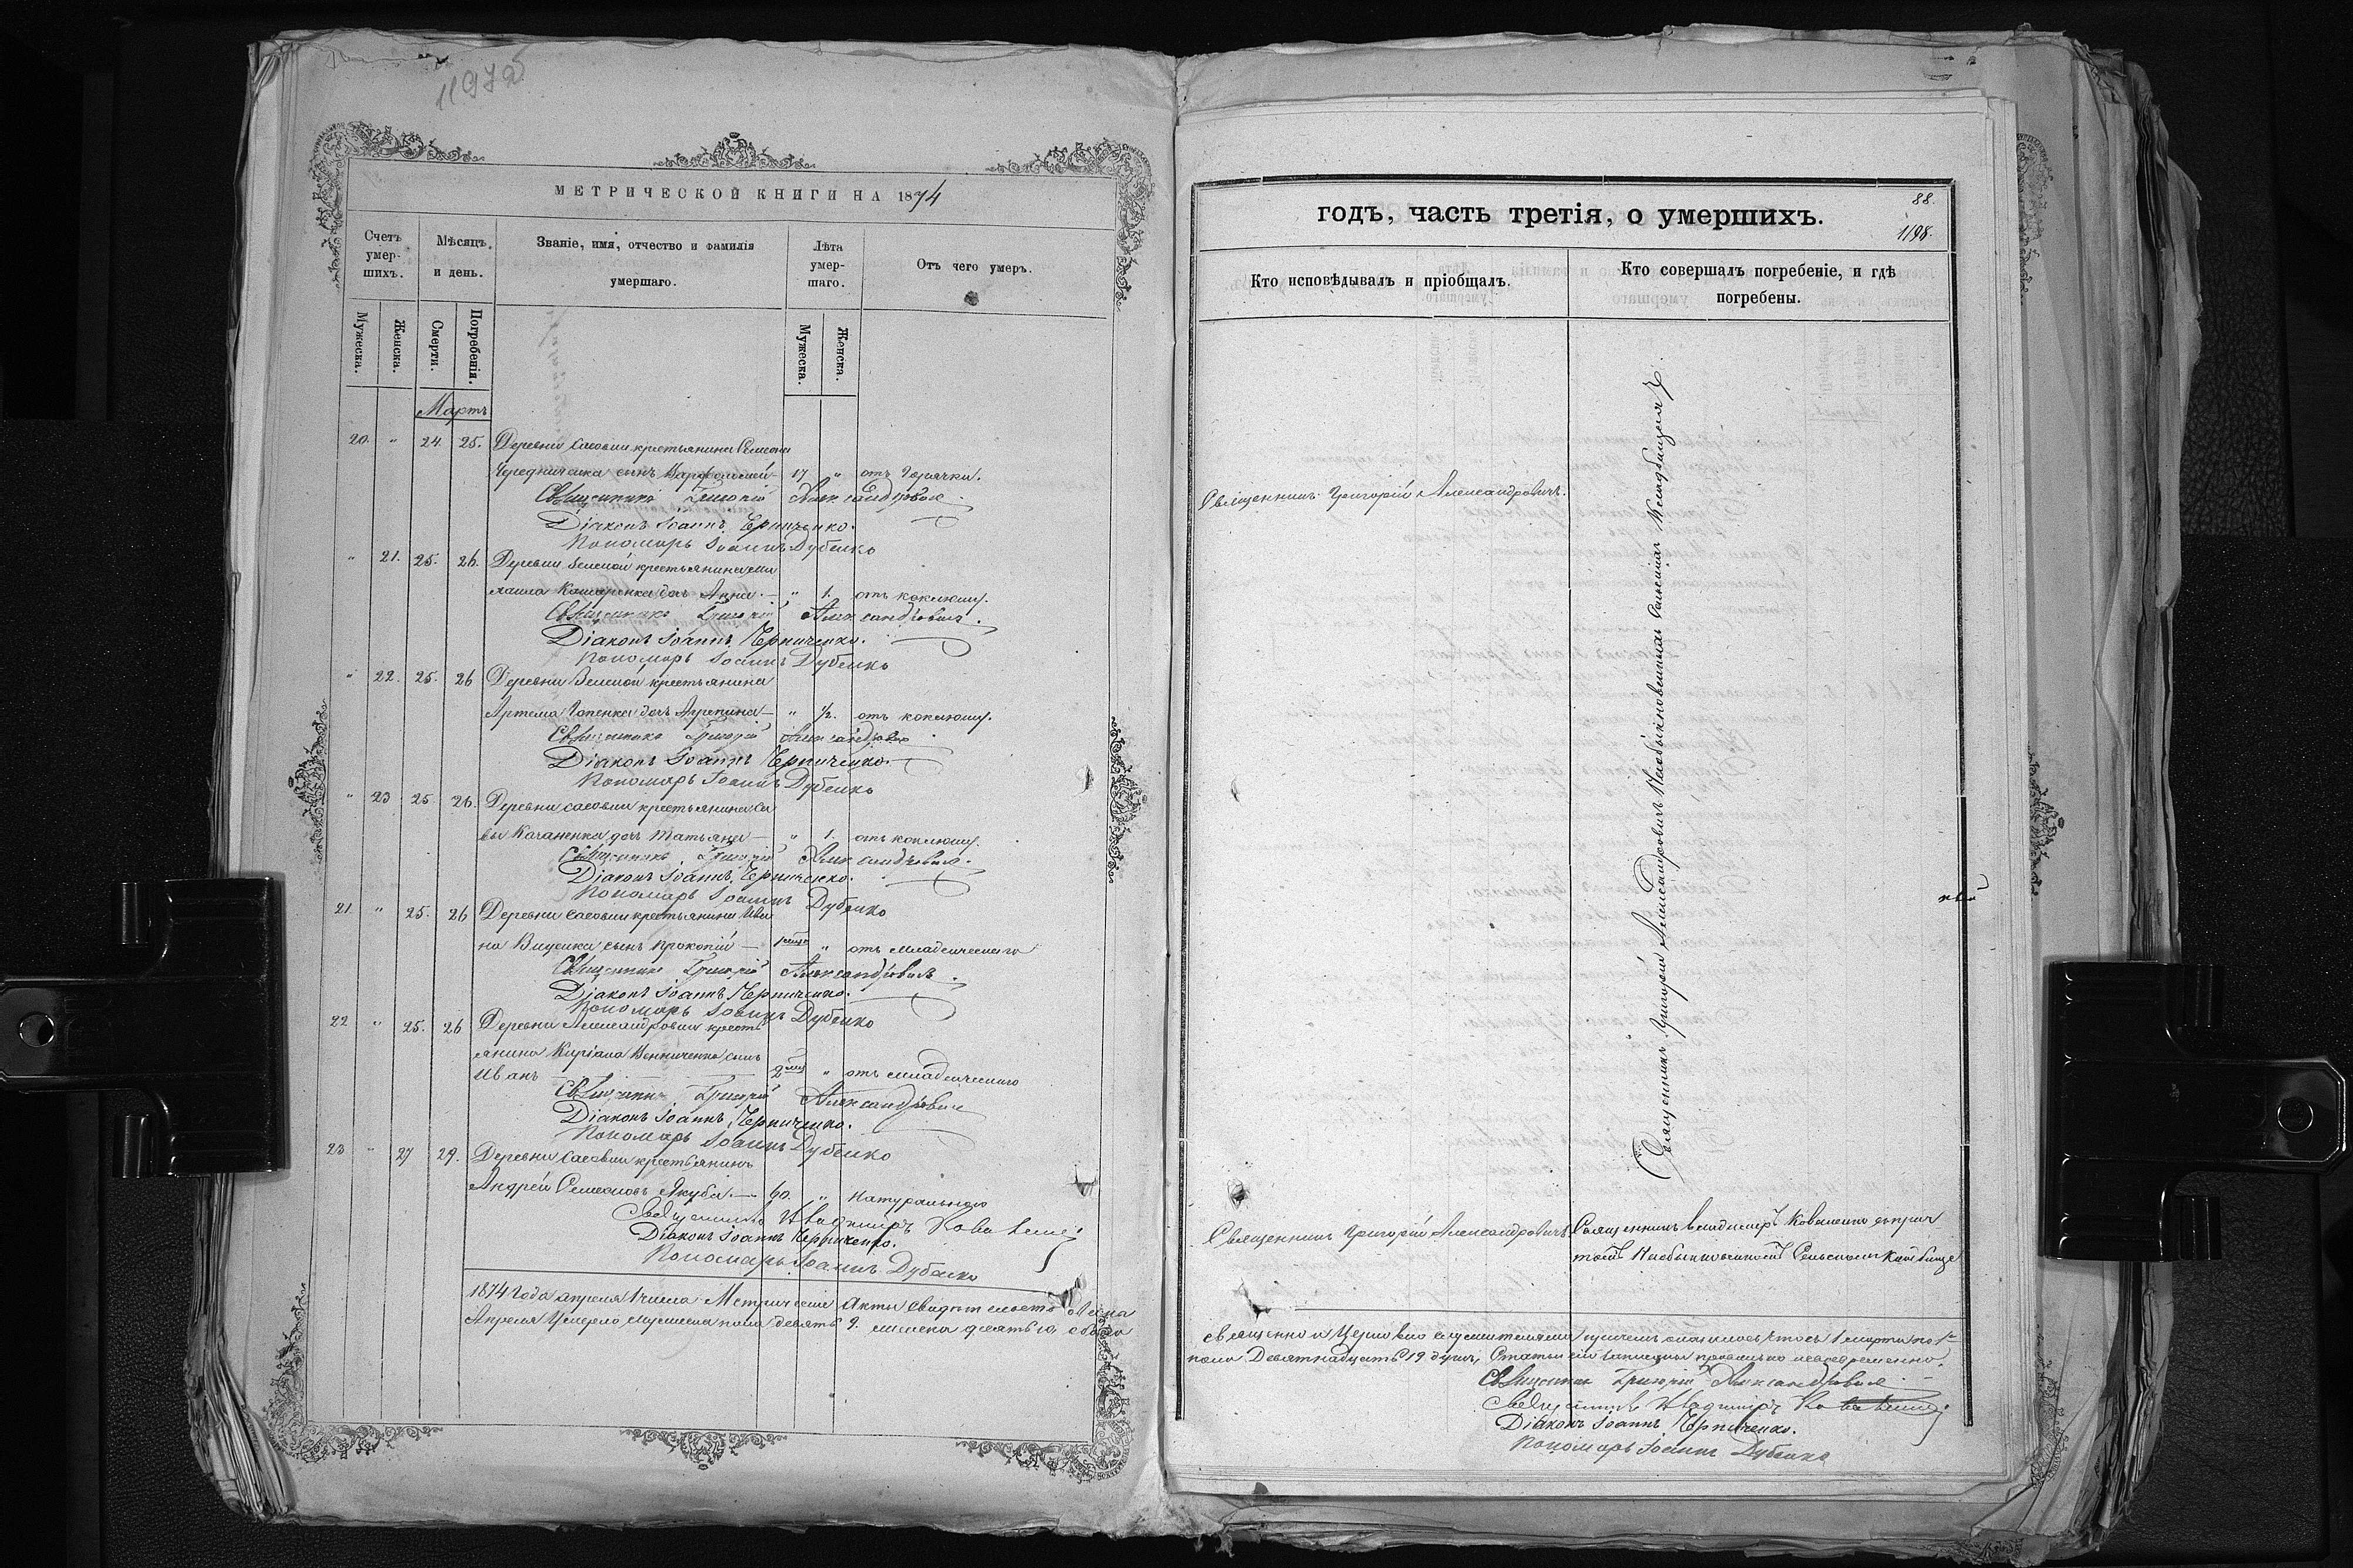 1197об
МЕТРИЧЕСКОЙ КНИГИ НА 1874
Счетъ умер-шихъ.
Мѣсяцъ и день.
Званіе, имя, отчество и фамилія умершаго.
Лѣта умер-шаго.
Отъ чего умеръ.
Мужеска.
Женска.
Смерти.
Погребенія.
Мужеска.
Женска.
Мартъ
20. " 24. 25. Деревни Сасовки крестьянина Семена
Чередниченка сынъ Варфоломей 17 " отъ горячки.
Священникъ Григорій Александровичъ
Діаконъ Іоаннъ Черниченко.
Пономарь Іоаннъ Дубенко
" 21. 25. 26. Деревни Зеленой крестьянина Ми
хаила дочь Анна — " 1. отъ коклюшу.
Священникъ Григорій Александровичъ
Діаконъ Іоаннъ Черниченко.
Пономарь Іоаннъ Дубенко
" 22. 25. 26 Деревни Зеленой крестьянина
Артема дочь — " ½. отъ коклюшу.
Священникъ Григорій Александровичъ
Діаконъ Іоаннъ Черниченко.
Пономарь Іоаннъ Дубенко
" 23 25. 26. Деревни Сасовки крестьянина Са
вы Качаненка дочь Татьяна — " 1. отъ коклюшу.
Священникъ Григорій Александровичъ
Діаконъ Іоаннъ Черниченко.
Пономарь Іоаннъ Дубенко
21. " 25. 26 Деревни Сасовки крестьянина Ива
на сынъ Прокопій — " отъ младенческаго
Священникъ Григорій Александровичъ
Діаконъ Іоаннъ Черниченко.
Пономарь Іоаннъ Дубенко
22 " 25. 26 Деревни Александровки кресть
янина Киріака сынъ
Иванъ — 2 " отъ младенческаго
Священникъ Григорій Александровичъ
Діаконъ Іоаннъ Черниченко.
Пономарь Іоаннъ Дубенко
23 " 27 29. Деревни Сасовки крестьянинъ
Андрей Семеновъ Якуба — 60. " Натурально
Священникъ Владимиръ Коваленко
Діаконъ Іоаннъ Черниченко.
Пономарь Іоаннъ Дубенко
1874 года апреля 1 числа Метрическіе Акты
Апреля умерло мужеска пола девять 9. женска десять 10, обоего
88.
1198.
годъ, часть третія, о умершихъ.
Кто исповѣдывалъ и пріобщалъ.
Кто совершалъ погребеніе, и гдѣ погребены.
Священникъ Григорій Александровичъ.
Священникъ Григорій Александровичъ
Священникъ Григорій Александровичъ
Священникъ Владимиръ Коваленко съ прич
томъ Сельскомъ Кладбище
священно и церковно служителями
пола Девятнадцать 19 душъ, Статьи сіи записаны правильно
Священникъ Григорій Александровичъ
Священникъ Владимиръ Коваленко
Діаконъ Іоаннъ Черниченко.
Пономарь Іоаннъ Дубенко